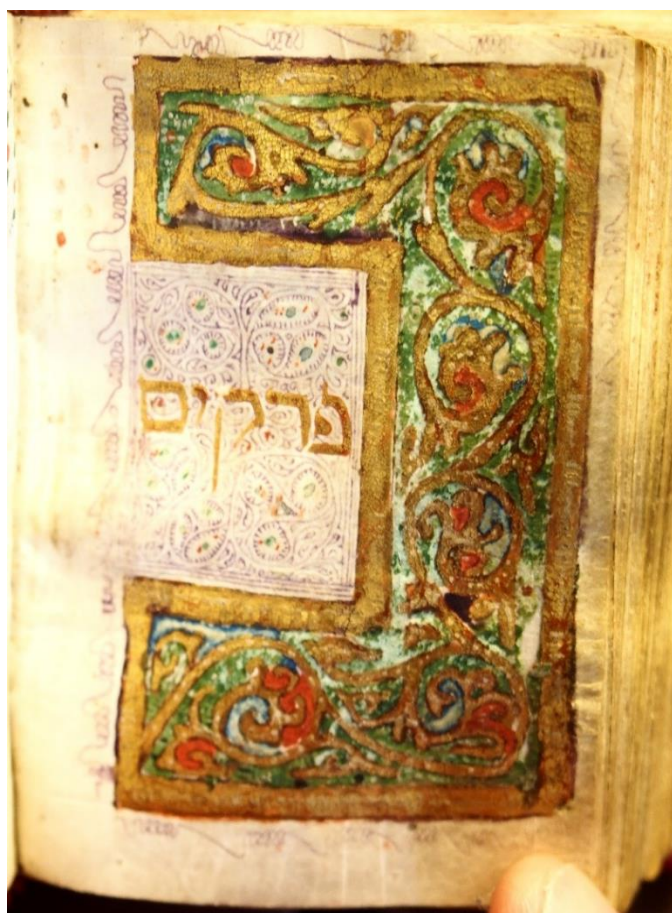 פרקים